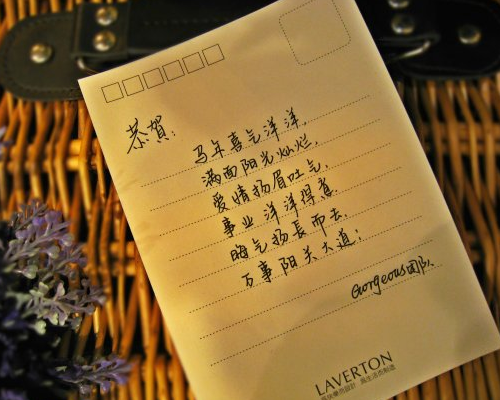 恭贺:
马年喜气洋洋,
满面阳光灿烂,
爱情扬眉吐气,
事业洋洋得意,
晦气扬长而去,
万事阳关大道!
Gorgeous团队
LAVERTON